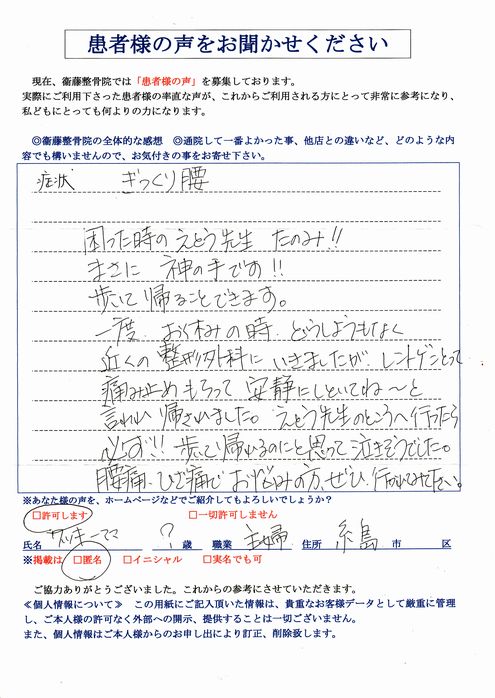 患者様の声をお聞かせください
現在、衛藤整骨院では「患者様の声」を募集しております。
実際にご利用下さった患者様の率直な声が、これからご利用される方にとって非常に参考になり、
私どもにとっても何よりの力になります。
◎衛藤整骨院の全体的な感想　◎通院して一番よかった事、他店との違いなど、どのような内
容でも構いませんので、お気付きの事をお寄せ下さい。
症状　ぎっくり腰
困った時のえとう先生 たのみ!!
まさに 神の手です!!
歩いて帰ることできます。
一度、お休みの時、どうしようもなく
近くの整形外科にいきましたが、レントゲンとって
痛み止めもらって 安静にしといてね〜と
言われ 帰されました。えとう先生のところへ行ったら
必ず!! 歩いて帰れるのにと思って泣きそうでした。
腰痛、ひざ痛で お悩みの方、ぜひ、行かれてみて下さい。
※あなた様の声を、ホームページなどでご紹介してもよろしいでしょうか？
□許可します　□一切許可しません
氏名 ママ ？ 歳　職業 主婦　住所 糸島 市　区
※掲載は □匿名　□イニシャル　□実名でも可
ご協力ありがとうございました。これからの参考にさせていただきます。
≪個人情報について≫　この用紙にご記入頂いた情報は、貴重なお客様データとして厳重に管理
し、ご本人様の許可なく外部への開示、提供することは一切ございません。
また、個人情報はご本人様からのお申し出により訂正、削除致します。